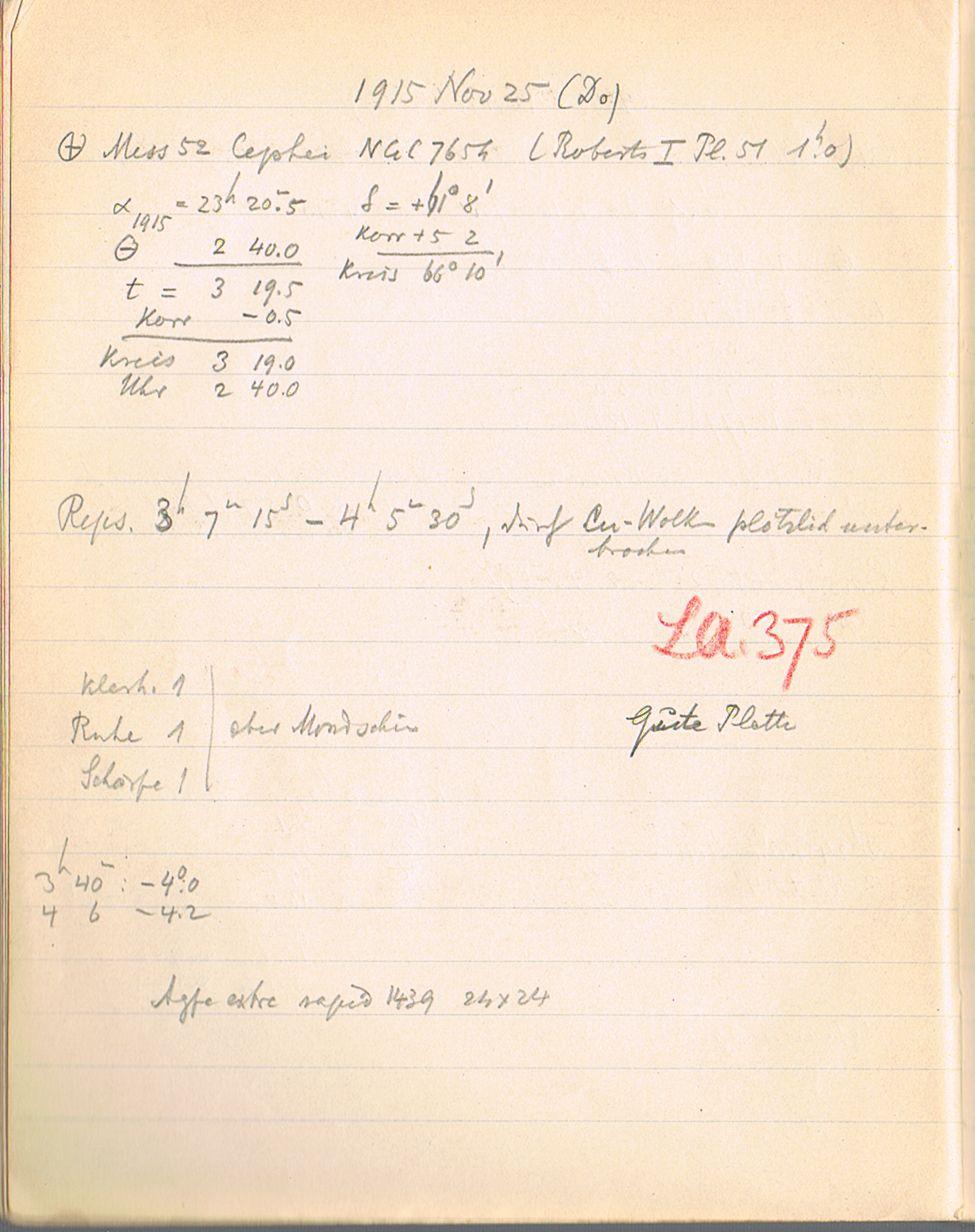 1915 Nov 25 (Do)
⊕ Mess 52 Cephei NGC 7654 (Roberts I Pl. 51 1ʰ.0)
α₁₉₁₅ = 23ʰ 20ᵐ.5 δ = +61° 8'
Θ 2 40.0 Korr +5 2
t = 3 19.5 Kreis 66° 10'
Korr −0.5
Kreis 3 19.0
Uhr 2 40.0
Exp. 3ʰ 7ᵐ 15ˢ – 4ʰ 5ᵐ 30ˢ, durch Cu-Wolke plötzlich unter-
brochen
LA. 375
Klarh. 1
Ruhe 1 aber Mondschein Gute Platte
Schärfe 1
3ʰ 40ᵐ : −4°.0
4 6 −4.2
Agfa extra rapid 1439 24x24